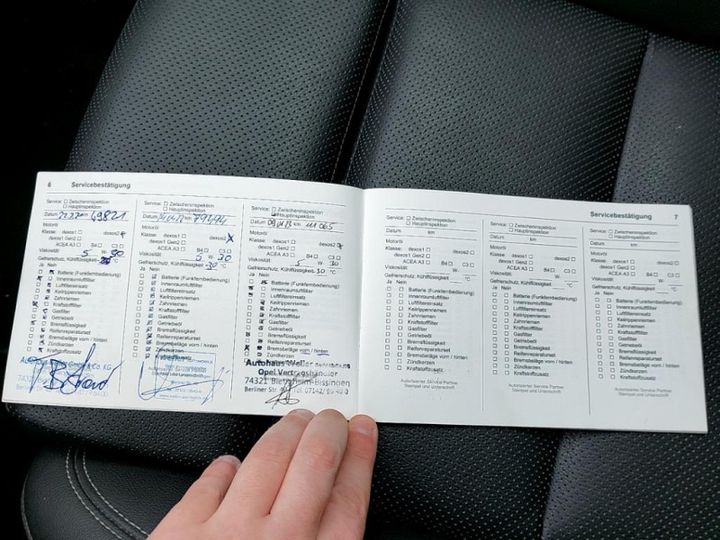 6 Servicebestätigung
Service: Zwischeninspektion
Hauptinspektion
Datum km 49821
Motoröl
Klasse: dexos1 dexos2
dexos1 Gen2
ACEA A3 B4 C3
Viskosität 5 W 30
Gefrierschutz, Kühlflüssigkeit °C
Ja Nein
Batterie (Funkfernbedienung)
Innenraumluftfilter
Luftfiltereinsatz
Keilrippenriemen
Zahnriemen
Kraftstofffilter
Gasfilter
Getriebeöl
Bremsflüssigkeit
Reifenreparaturset
Bremsbeläge vorn / hinten
Zündkerzen
Kraftstoffzusatz
Service: Zwischeninspektion
Hauptinspektion
Datum km 79294
Motoröl
Klasse: dexos1 dexos2 x
dexos1 Gen2
ACEA A3 B4 C3
Viskosität 5 W 30
Gefrierschutz, Kühlflüssigkeit -30 °C
Ja Nein
Batterie (Funkfernbedienung)
Innenraumluftfilter
Luftfiltereinsatz
Keilrippenriemen
Zahnriemen
Kraftstofffilter
Gasfilter
Getriebeöl
Bremsflüssigkeit
Reifenreparaturset
Bremsbeläge vorn / hinten
Zündkerzen
Service: Zwischeninspektion
Hauptinspektion
Datum km 111 065
Motoröl
Klasse: dexos1 dexos2
dexos1 Gen2
ACEA A3 B4 C3
Viskosität 5 W 30
Gefrierschutz, Kühlflüssigkeit -30 °C
Ja Nein
Batterie (Funkfernbedienung)
Innenraumluftfilter
Luftfiltereinsatz
Keilrippenriemen
Zahnriemen
Kraftstofffilter
Gasfilter
Getriebeöl
Bremsflüssigkeit
Reifenreparaturset
Bremsbeläge vorn / hinten
Zündkerzen
Autohaus Weller
Opel Vertragshändler
74321 Bietigheim-Bissingen
Berliner Str. Tel. 07142/
Servicebestätigung 7
Service: Zwischeninspektion
Hauptinspektion
Datum km
Motoröl
Klasse: dexos1 dexos2
dexos1 Gen2
ACEA A3 B4 C3
Viskosität W-
Gefrierschutz, Kühlflüssigkeit °C
Ja Nein
Batterie (Funkfernbedienung)
Innenraumluftfilter
Luftfiltereinsatz
Keilrippenriemen
Zahnriemen
Kraftstofffilter
Gasfilter
Getriebeöl
Bremsflüssigkeit
Reifenreparaturset
Bremsbeläge vorn / hinten
Zündkerzen
Kraftstoffzusatz
Autorisierter Service Partner
Stempel und Unterschrift
Service: Zwischeninspektion
Hauptinspektion
Datum km
Motoröl
Klasse: dexos1 dexos2
dexos1 Gen2
ACEA A3 B4 C3
Viskosität W-
Gefrierschutz, Kühlflüssigkeit °C
Ja Nein
Batterie (Funkfernbedienung)
Innenraumluftfilter
Luftfiltereinsatz
Keilrippenriemen
Zahnriemen
Kraftstofffilter
Gasfilter
Getriebeöl
Bremsflüssigkeit
Reifenreparaturset
Bremsbeläge vorn / hinten
Zündkerzen
Kraftstoffzusatz
Autorisierter Service Partner
Stempel und Unterschrift
Service: Zwischeninspektion
Hauptinspektion
Datum km
Motoröl
Klasse: dexos1 dexos2
dexos1 Gen2
ACEA A3 B4 C3
Viskosität W-
Gefrierschutz, Kühlflüssigkeit °C
Ja Nein
Batterie (Funkfernbedienung)
Innenraumluftfilter
Luftfiltereinsatz
Keilrippenriemen
Zahnriemen
Kraftstofffilter
Gasfilter
Getriebeöl
Bremsflüssigkeit
Reifenreparaturset
Bremsbeläge vorn / hinten
Zündkerzen
Kraftstoffzusatz
Autorisierter Service Partner
Stempel und Unterschrift